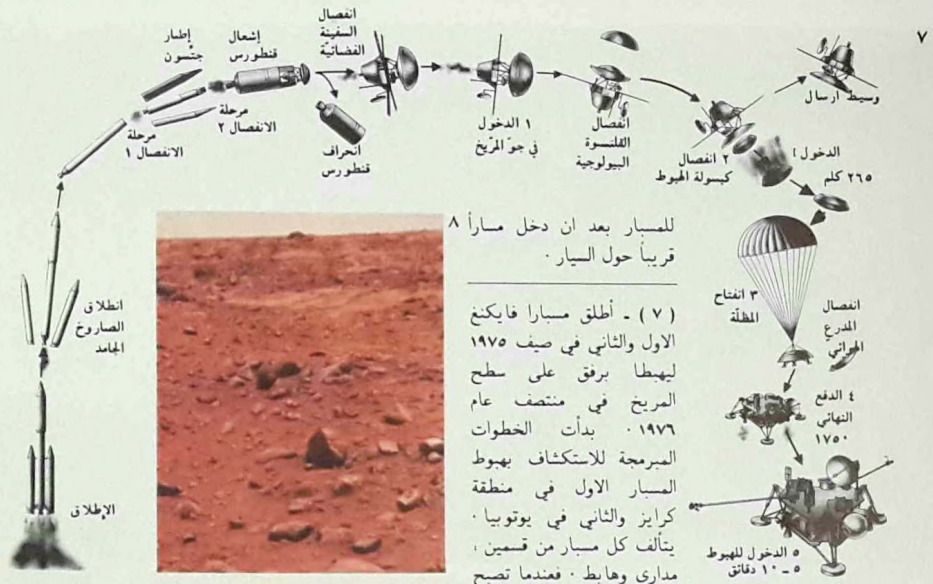 ٧
الإطلاق
انطلاق
الصاروخ
الجامد
مرحلة
الانفصال ١
إطار
جتسون
مرحلة
الانفصال ٢
إشعال
قنطورس
انفصال
السفينة
الفضائية
انحراف
قنطورس
١ الدخول
في جوّ المرّيخ
انفصال
القلنسوة
البيولوجية
٢ انفصال
كبسولة الهبوط
وسيط ارسال
الدخول
٢٦٥ كلم
٣ انفتاح
المظلّة
انفصال
المدرع
الحراثي
٤ الدفع
النهائي
١٧٥٠
٥ الدخول للهبوط
٥ - ١٠ دقائق
٨
للمسبار بعد ان دخل مساراً
قريباً حول السيار ٠
( ٧ ) ـ أطلق مسبارا فايكنغ
الاول والثاني في صيف ١٩٧٥
ليهبطا برفق على سطح
المريخ في منتصف عام
١٩٧٦ ٠ بدأت الخطوات
المبرمجة للاستكشاف بهبوط
المسبار الاول في منطقة
كرايز والثاني في يوتوبيا ٠
يتألف كل مسبار من قسمين :
مداري وهابط ٠ فعندما تصبح